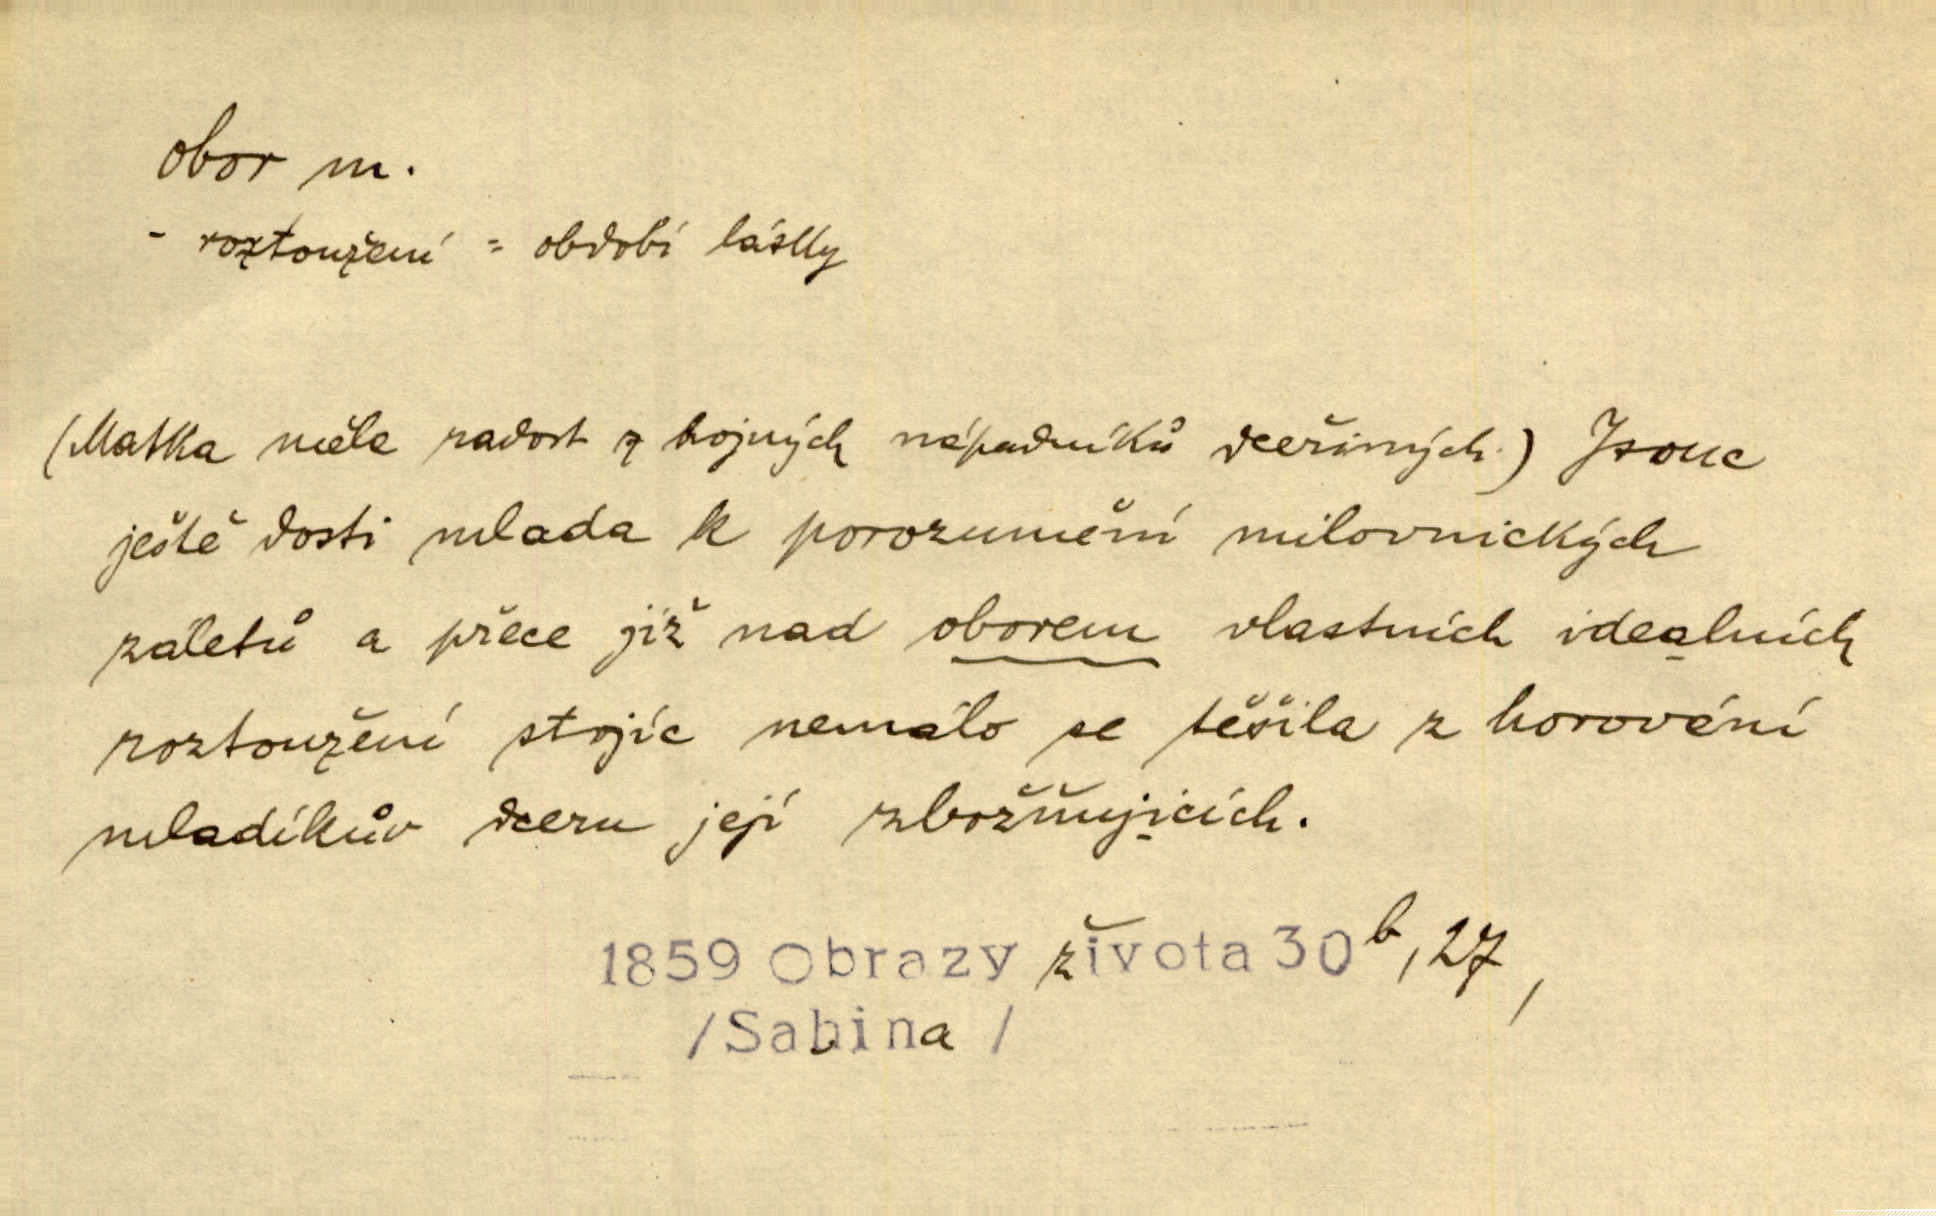 obor m.
- roztoužení = období lásky
(Matka měla radost z hojných nápadníků dceřiných.) Jsouc
ještě dosti mlada k porozumění milovnických
záletů a přece již nad oborem vlastních idealních
roztoužení stojíc nemálo se těšila z horování
mladíkův dceru její zbožňujicích.
1859 Obrazy života 30b, 27,
/Sabina/